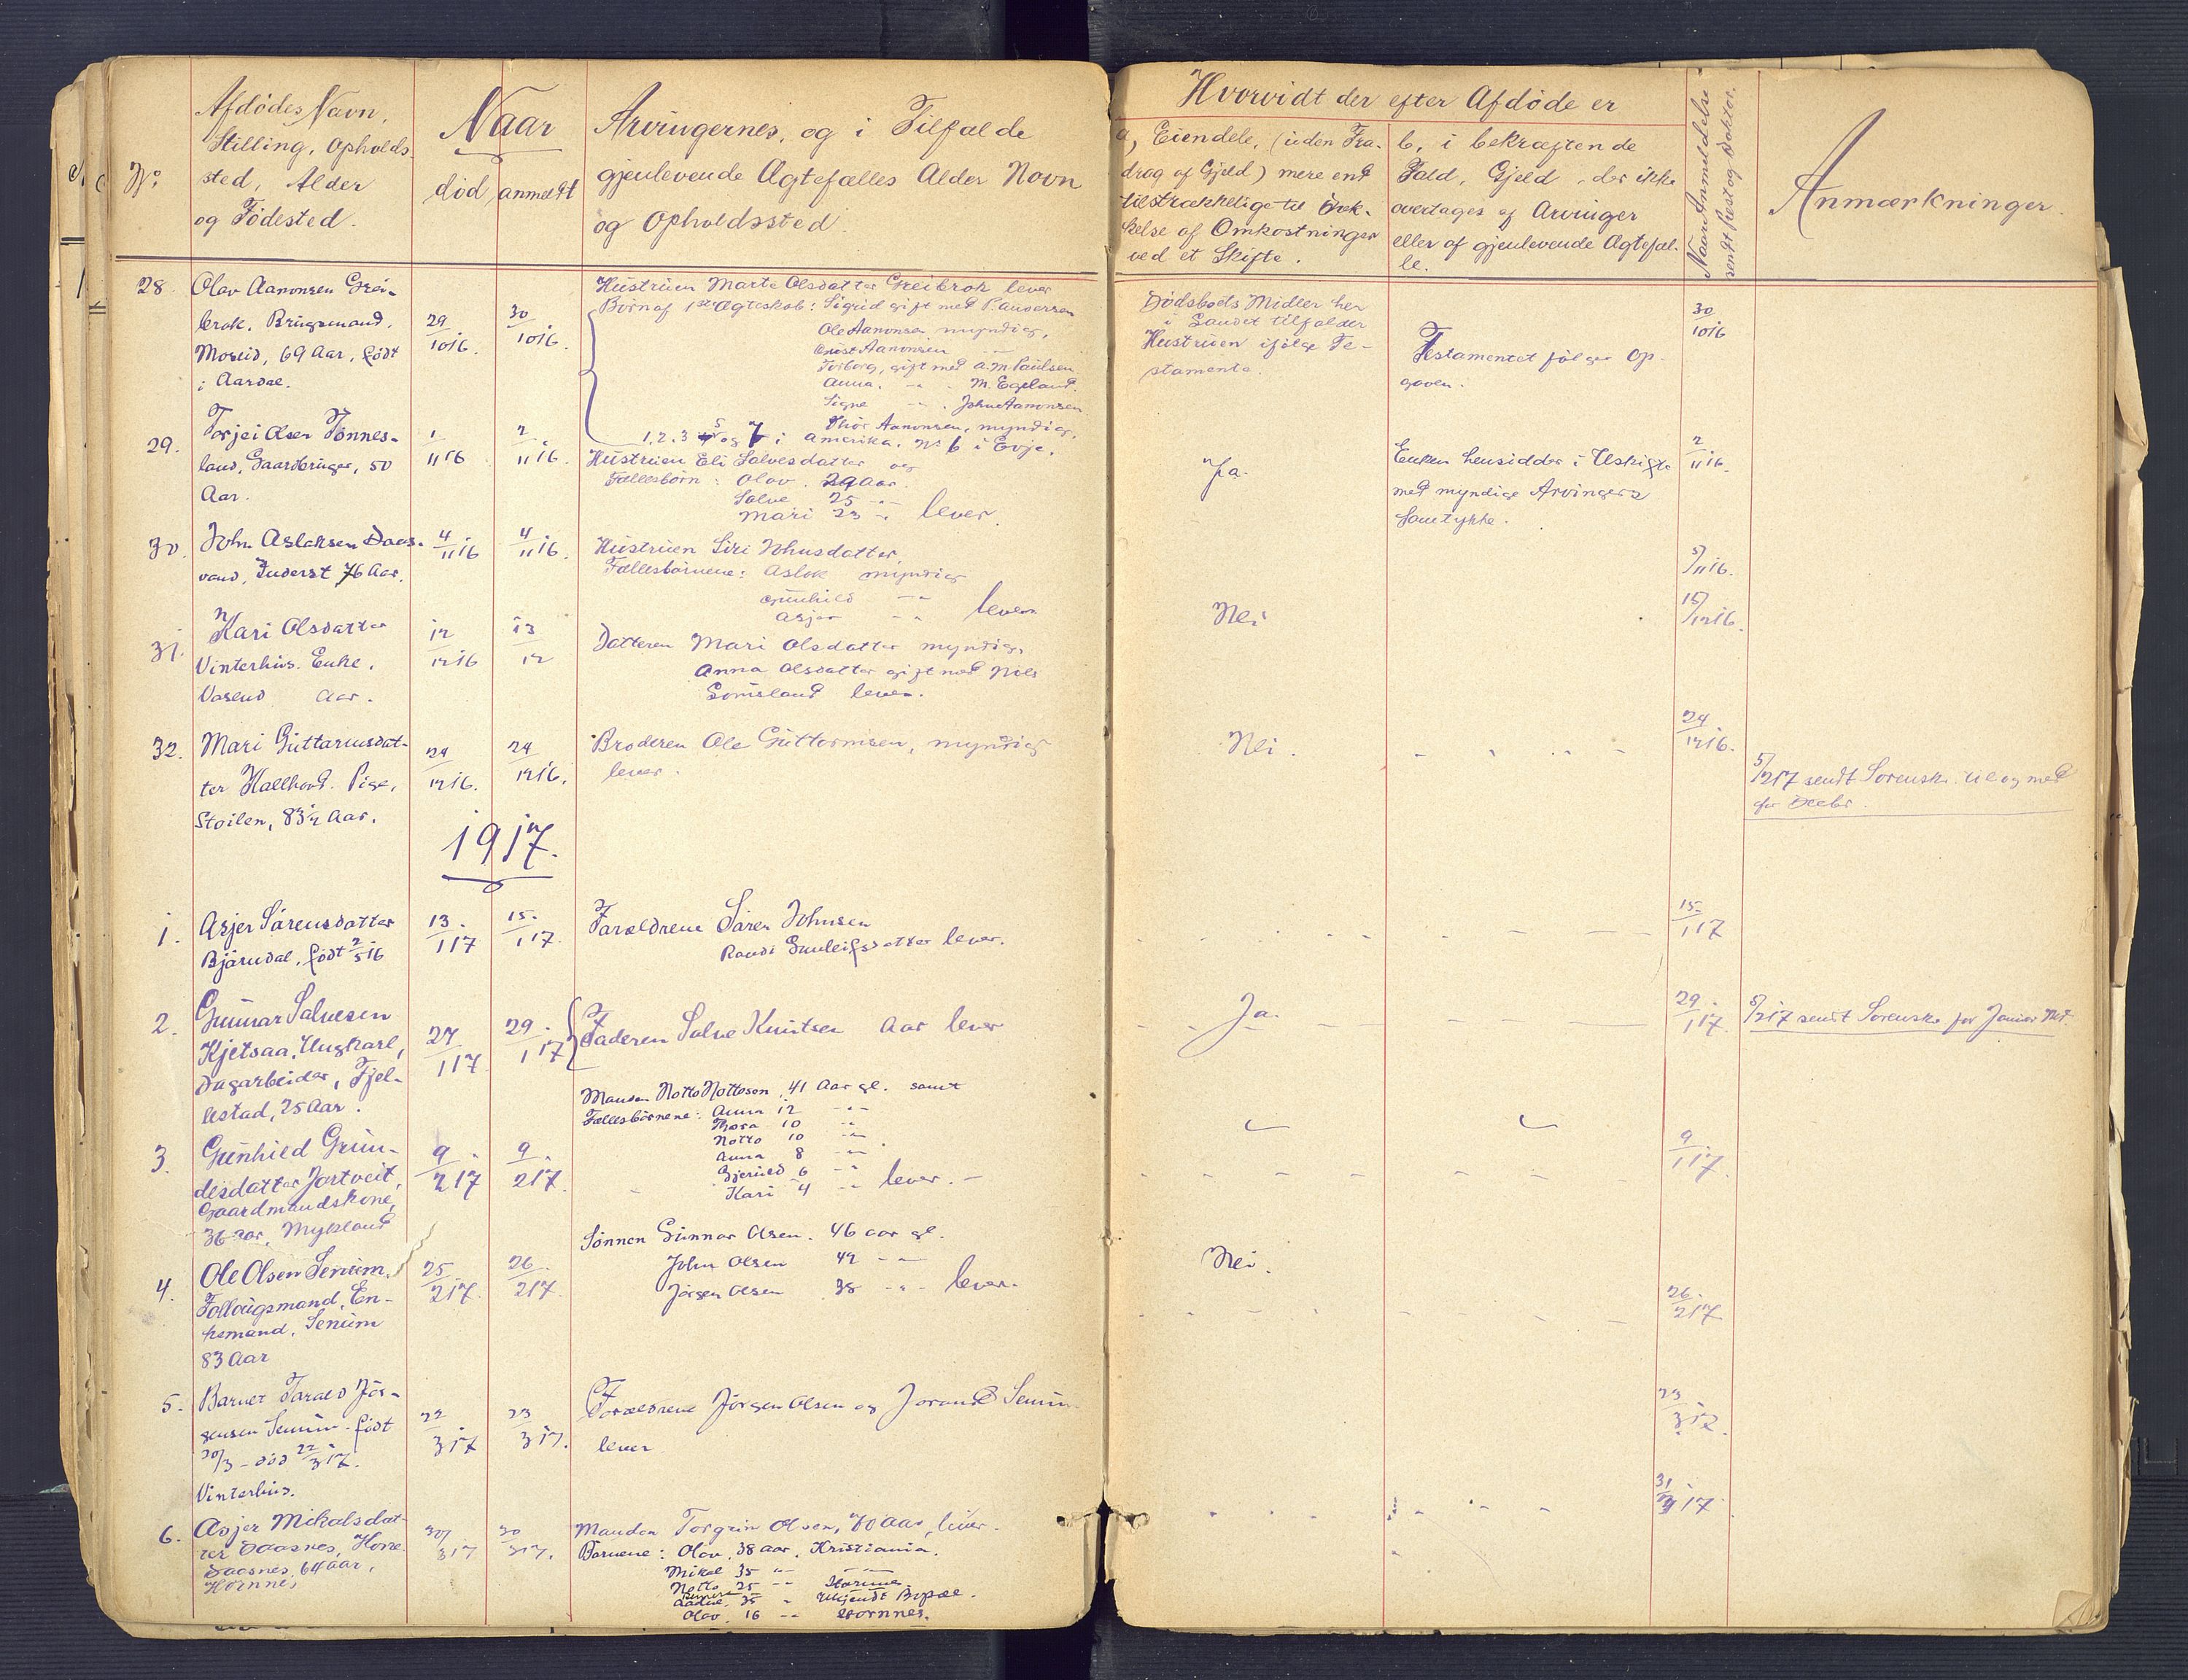 No.
Afdødes Navn,
Stilling, Opholds-
sted, Alder
og Fødested.
Naar
død anmeldt
Arvingernes, og i Tilfælde
gjenlevende Ægtefælles Alder Navn
og Opholdssted.
Hvorvidt der efter Afdøde er
a, Eiendele, (uden Fra-
drag af Gjeld) mere end
tilstrækkelige til Dæk-
kelse af Omkostninger
ved et Skifte.
b, i bekræftende
Fald, Gjeld, der ikke
overtages af Arvinger
eller af gjenlevende Ægtefæl-
le.
Naar Anmeldelse
sendt Prest og Doktor.
Anmærkninger.
28. Olav Aanonsen Grei-
brok. Brugsmand.
Moseid, 69 Aar, født
i Aardal.
29/10 16. 30/10 16.
Hustruen Marte Olsdatter Greibrok lever
Børn af 1ste Ægteskab: Sigrid gift med P. Andersen
Ole Aanonsen myndig,
Aanonsen
Torborg, gift med A. M. Paulsen
Anna. -"- M. Egeland.
Signe -"- John Aanonsen
Thor Aanonsen, myndig,
1. 2. 3 5 og 7 i Amerika. No 6 i Evje.
Dødsboets Midler her
i Landet tilfalder
Hustruen ifølge Te-
stamente.
Testamentet følger Op-
gaven.
30/10 16
29. Torjei Olsen Tønnes-
land, Gaardbruger, 50
Aar.
1/11 16 2/11 16.
Hustruen Eli Salvesdatter og
Fællesbørn: Olav. 29 Aar.
Salve 25 -"-
Mari 23 -"- lever.
Ja.
Enken hensidder i Uskifte
med myndige Arvingers
Samtykke.
2/11 16.
30. John Aslaksen Daas-
vand, Inderst 76 Aar.
4/11 16 4/11 16.
Hustruen Siri Johnsdatter,
Fællesbørnene: Aslak myndig
Gunhild -"-
Asjer -"- lever
5/11 16.
31. Kari Olsdatter
Vinterhus. Enke.
Vasend Aar.
12/12 16 13/12
Datteren Mari Olsdatter myndig,
Anna Olsdatter gift med Nils
lever.
Nei
15/12 16.
32. Mari Guttormsdat-
ter Hallhord. Pige,
Stoilen, 83½ Aar.
24/12 16. 24/12 16.
Broderen Ole Guttormsen, myndig
lever.
Nei.
24/12 16.
5/2 17 sendt Sorensk. til og med
for Decbr.
1917.
1. Asjer Sørensdatter
Bjørndal, født 2/5 16
13/1 17 15/1 17.
Forældrene Søren Johnsen
Randi Gunleifsdatter lever.
15/1 17
2. Gunnar Salvesen
Kjetsaa, Ungkarl,
Dagarbeider, Fjel-
lestad, 25 Aar.
27/1 17 29/1 17
Faderen Salve Knutsen Aar lever
Ja.
29/1 17.
5/2 17 sendt Sorensk. for Januar Mnd.
3. Gunhild Grun-
desdatter Jortveit,
Gaardmandskone,
36 Aar, Mykland
9/2 17 9/2 17.
Manden Notto Nottoson, 41 Aar gl. samt
Fællesbørnene: Anna 12 -"-
Thora 10 -"-
Notto 10 -"-
Anna 8 -"-
Gjerild 6 -"-
Kari 4 -"- lever. -
9/1 17.
4. Ole Olsen Senum,
Follaugsmand, En-
kemand, Senum
83 Aar
25/2 17. 26/2 17.
Sønnen Gunnar Olsen. 46 aar gl.
John Olsen 42 -"-
Jørgen Olsen 38 -"- lever.
Nei.
26/2 17
5. Barnet Tarald Jør-
gensen Senum. født
20/3 - død 22/3 17.
Vinterhus.
22/3 17 23/3 17.
Forældrene Jørgen Olsen og Jorand Senum
lever
23/3 17.
6. Asjer Mikalsdat-
ter Daasnes, Kone
Daasnes, 64 Aar,
Hornnes
30/3 17 30/3 17.
Manden Torgrim Olsen, 70 Aar, lever.
Børnene: Olav, 38 aar. Kristiania.
Mikal 35 -"-
Notto 25 -"- Hornnes
35 " Ukjendt Bopæl.
Olav. 16 -"- Hornnes.
31/3 17